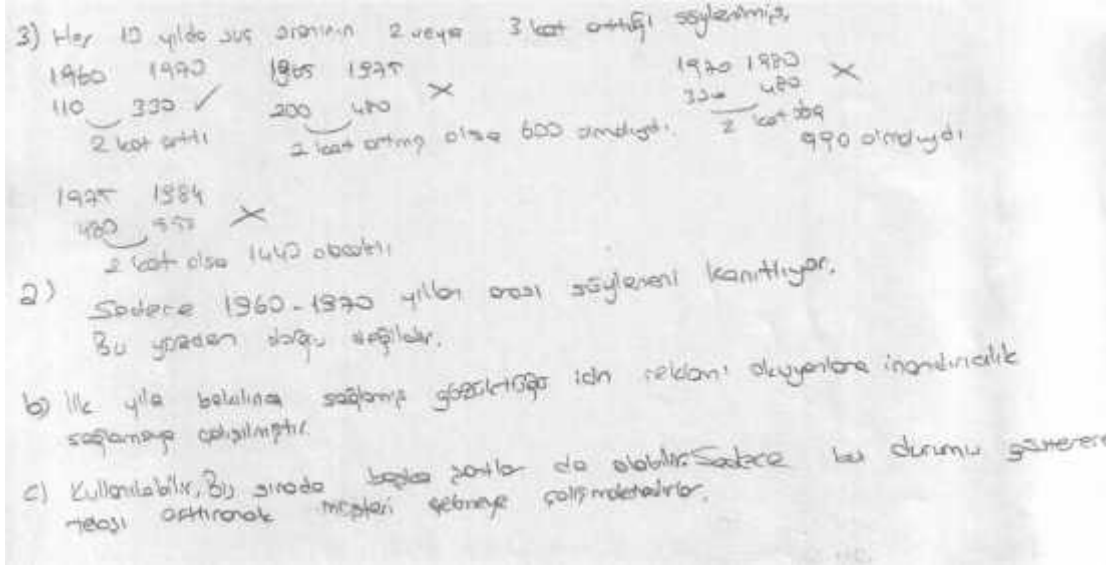 3) Her 10 yılda suç oranının 2 veya 3 kat arttığı söylenmiş.
1960 1970 1965 1975 1970 1980
110 330 ✓ 200 480 × 330 480 ×
2 kat arttı 2 kat artmış olsa 600 olmalıydı. 2 kat olsa
990 olmalıydı
1975 1984
480 ×
2 kat olsa 1440 olacaktı
a) Sadece 1960-1970 yılları arası söyleneni kanıtlıyor.
Bu yüzden doğru değildir.
b) İlk yıla bakılınca sağlamış gözüktüğü için reklamı okuyanlara inandırıcılık
sağlamaya çalışılmıştır.
c) Kullanılabilir. Bu sırada başka şartlar da olabilir. Sadece bu durumu göstererek
telaşı arttırarak müşteri çekmeye çalışmaktadırlar.